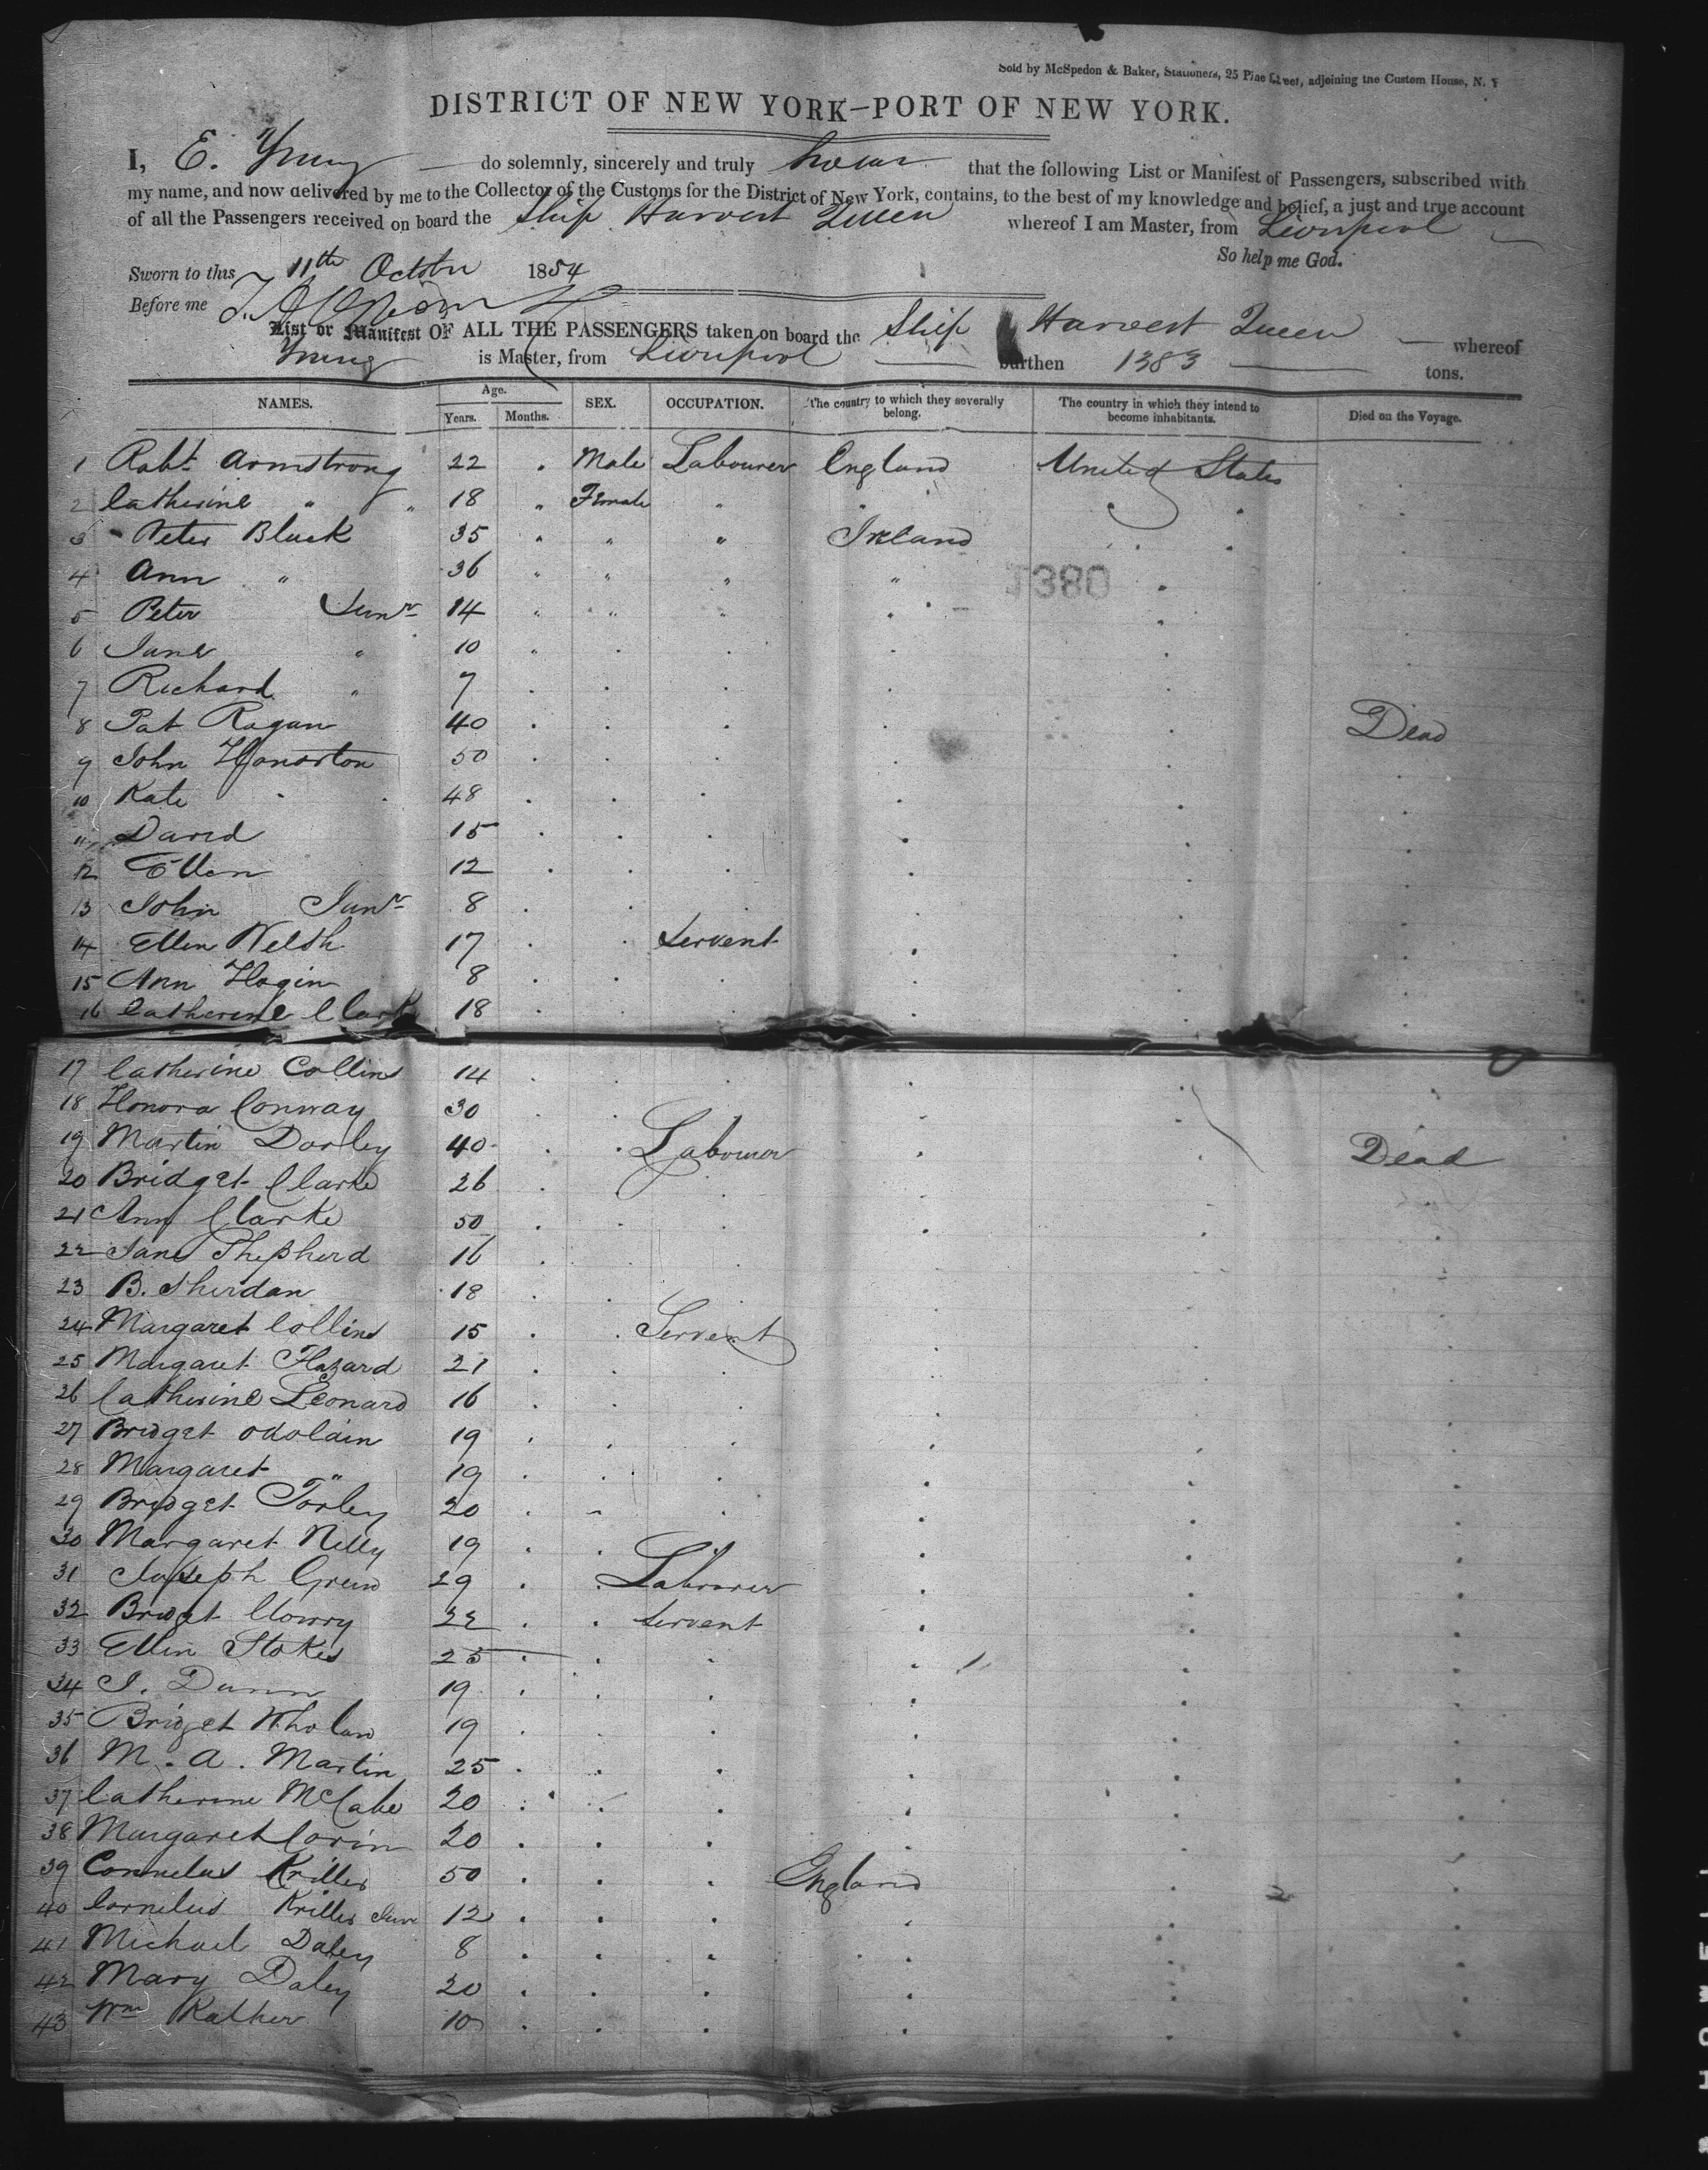 Sold by McSpedon & Baker, Stationers, 25 Pine Street, adjoining the Custom House, N. Y
DISTRICT OF NEW YORK—PORT OF NEW YORK.
I, E. Young do solemnly, sincerely and truly swear that the following List or Manifest of Passengers, subscribed with
my name, and now delivered by me to the Collector of the Customs for the District of New York, contains, to the best of my knowledge and belief, a just and true account
of all the Passengers received on board the Ship Harvest Queen whereof I am Master, from Liverpool
So help me God.
Sworn to this 11th October 1854
Before me
List or Manifest OF ALL THE PASSENGERS taken on board the Ship Harvest Queen whereof
Young is Master, from Liverpool burthen 1383 tons.
NAMES. Age. Years. Months. SEX. OCCUPATION. The country to which they severally belong. The country in which they intend to become inhabitants. Died on the Voyage.
1 Robt Armstrong 22 " Male Labourer England United States
2 Catherine " " 18 " Female " "
3 Peter Black 35 " " " Ireland
4 Ann " 36 " " " "
1380
5 Peter Junr 14 " " " "
6 Jane " 10 "
7 Richard " 7
8 Pat Ragan 40 Dead
9 John 50
10 Kate 48
11 David 15
12 Ellen 12
13 John Junr 8
14 Ellen Welsh 17 Servent
15 Ann Hagin 8
16 Catherine Clark 18
17 Catherine Collins 14
18 Honora Conway 30
19 Martin Dorley 40 Labourer Dead
20 Bridget Clarke 26
21 Ann Clarke 50
22 Jane Shepherd 16
23 B. Sherdan 18
24 Margaret Collins 15 Servent
25 Margaret Hazard 21
26 Catherine Leonard 16
27 Bridget odolain 19
28 Margaret " 19
29 Bridget Torley 20
30 Margaret Nelly 19
31 Joseph Green 29 Labourer
32 Bridget Clowry 22 Servent
33 Ellen Stokes 25
34 J. Dunn 19
35 Bridget Wholan 19
36 M. A. Martin 25
37 Catherine McCabe 20
38 Margaret Corin 20
39 Cornelus Kriller 50 England
40 Cornelius Kriller Junr 12
41 Michael Daley 8
42 Mary Daley 20
43 Wm Kather 10